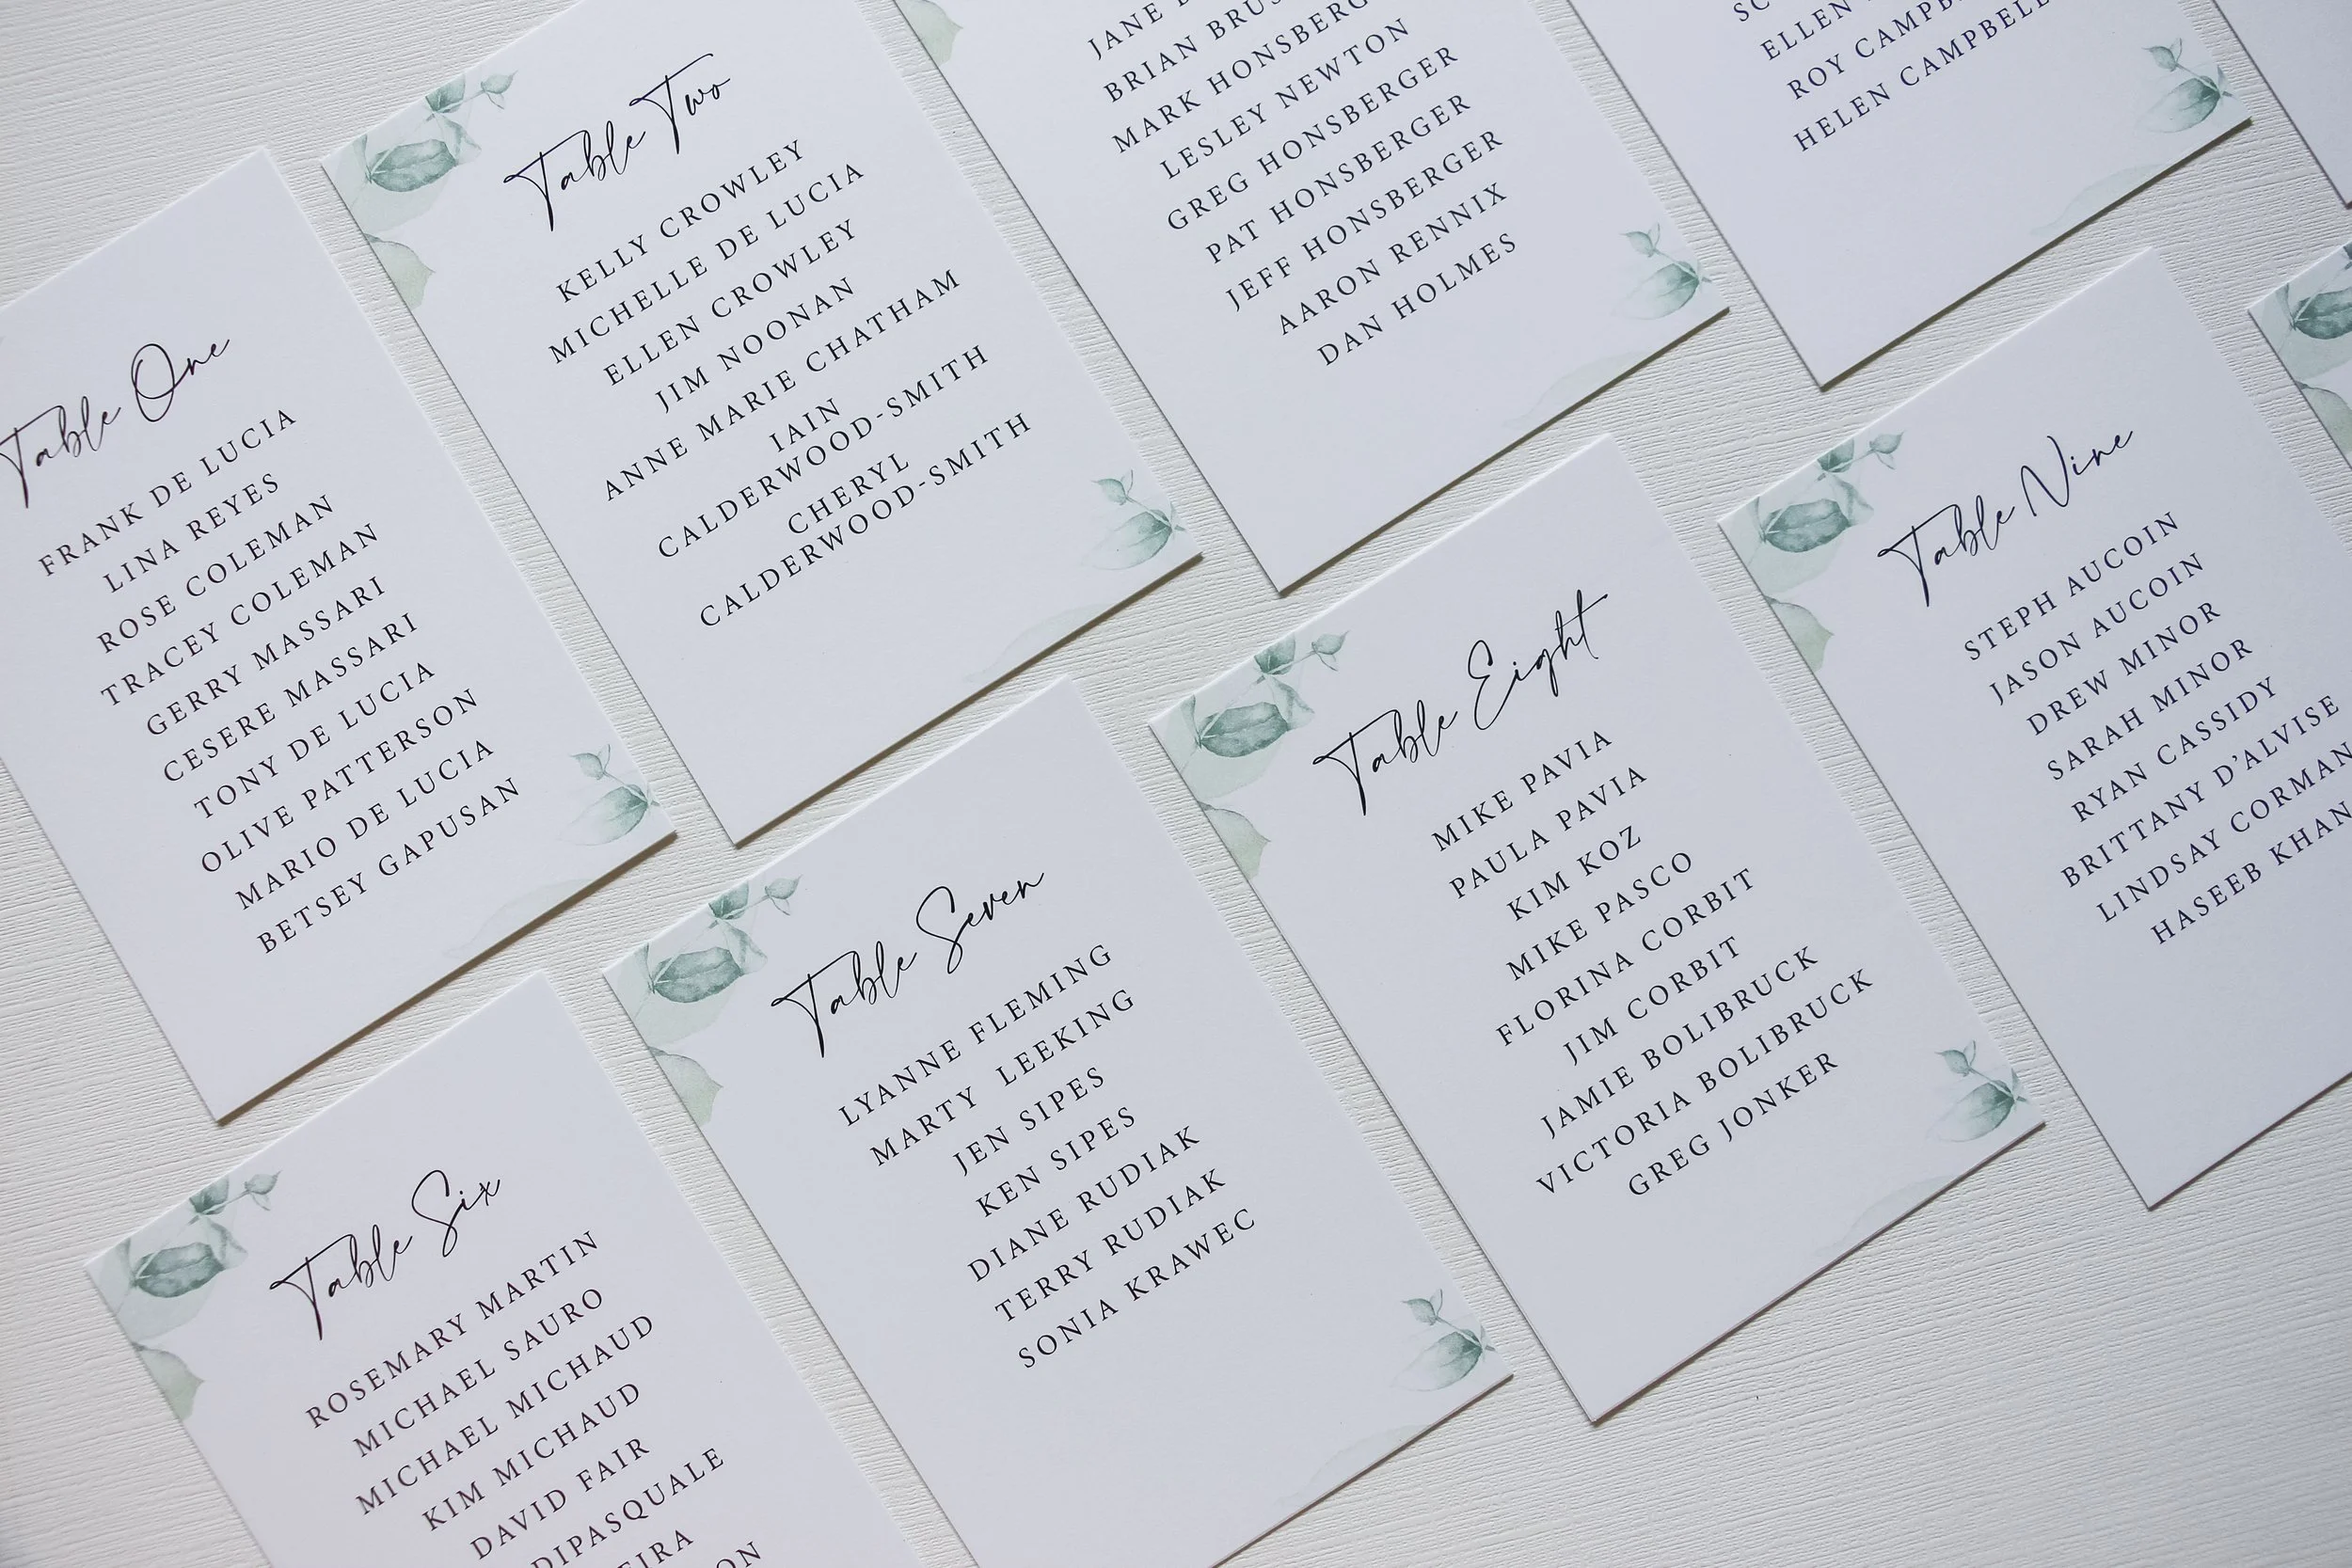 Table One
FRANK DE LUCIA
LINA REYES
ROSE COLEMAN
TRACEY COLEMAN
GERRY MASSARI
CESERE MASSARI
TONY DE LUCIA
OLIVE PATTERSON
MARIO DE LUCIA
BETSEY GAPUSAN
Table Two
KELLY CROWLEY
MICHELLE DE LUCIA
ELLEN CROWLEY
JIM NOONAN
ANNE MARIE CHATHAM
IAIN
CALDERWOOD-SMITH
CHERYL
CALDERWOOD-SMITH
JANE
BRIAN
MARK HONSBERGER
LESLEY NEWTON
GREG HONSBERGER
PAT HONSBERGER
JEFF HONSBERGER
AARON RENNIX
DAN HOLMES
ELLEN
ROY CAMPBELL
HELEN CAMPBELL
Table Six
ROSEMARY MARTIN
MICHAEL SAURO
MICHAEL MICHAUD
KIM MICHAUD
DAVID FAIR
DIPASQUALE
Table Seven
LYANNE FLEMING
MARTY LEEKING
JEN SIPES
KEN SIPES
DIANE RUDIAK
TERRY RUDIAK
SONIA KRAWEC
Table Eight
MIKE PAVIA
PAULA PAVIA
KIM KOZ
MIKE PASCO
FLORINA CORBIT
JIM CORBIT
JAMIE BOLIBRUCK
VICTORIA BOLIBRUCK
GREG JONKER
Table Nine
STEPH AUCOIN
JASON AUCOIN
DREW MINOR
SARAH MINOR
RYAN CASSIDY
BRITTANY D'ALVISE
LINDSAY CORMAN
HASEEB KHAN